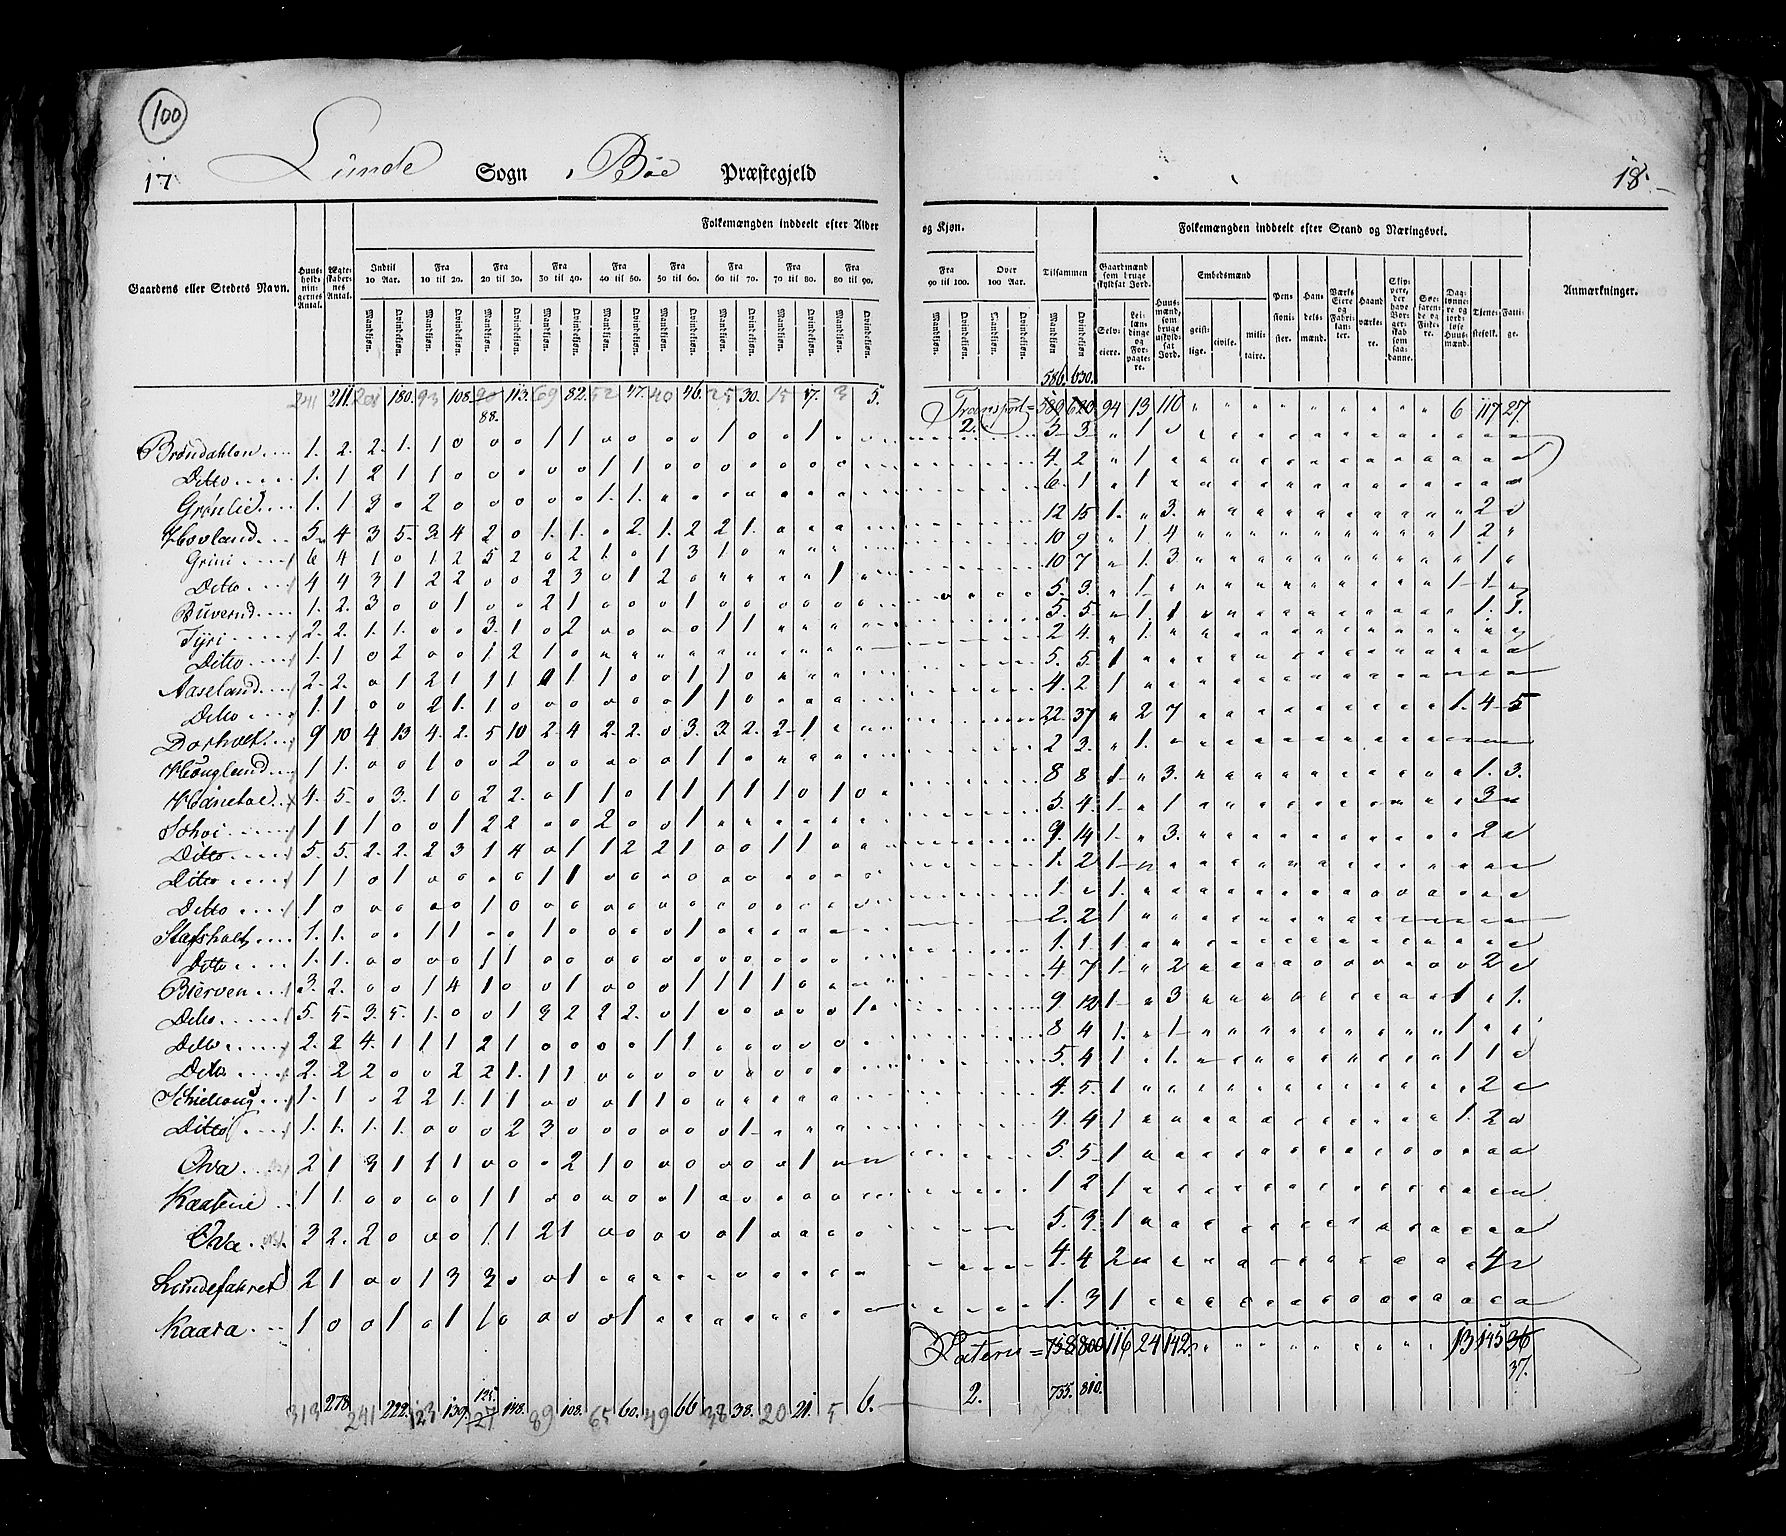 100
17 Lunde Sogn, Bøe Præstegjeld 18.
Gaardens eller Stedets Navn.
Huus-holdnin-gernes Antal.
Ægte-skabernes Antal.
Folkemængden inddeelt efter Alder og Kjøn.
Indtil 10 Aar. Fra 10 til 20. Fra 20 til 30. Fra 30 til 40. Fra 40 til 50. Fra 50 til 60. Fra 60 til 70. Fra 70 til 80. Fra 80 til 90. Fra 90 til 100. Over 100 Aar. Tilsammen
Mandkjøn. Qvindekjøn.
Folkemængden inddeelt efter Stand og Næringsvei.
Gaardmænd som bruge skyldsat Jord. Selv-eiere. Lei-læn-dinge og For-pagte-re.
Huus-mænd, som bruge uskyld-sat Jord.
Embedsmænd geist-lige. civile. mili-taire.
Pen-sioni-ster. Han-dels-mænd. Værks Eiere og Fabri-kan-ter. Haand-værke-re. Skip-pere, der have Bor-ger-skab som saa-danne. Søe-farende og Fiske-re. Dag-lønne-re og jord-løse Huus-mænd. Tjene-stefolk. Fatti-ge.
Anmærkninger.
586. 630.
241 211. 201 180. 93 108. 90 113. 69 82. 52 47. 40 46. 25 30. 15 17. 3 5. Transport = 589 620 94 13 110 6 117 27.
88. 2.
Brøndahlen 1. 2. 2. 1. 1 0 0 0 1 1 0 0 0 0 1 0 0 1 3 3 1
Ditto 1. 1 2 1 1 0 0 0 0 0 1 1 4. 2 1
Grønlie 1. 1 3 0 2 0 0 0 0 0 1. 1. 6 1 1
Hovland 5. 4 3 5. 3. 4 2 0 1. 1. 0 2. 1. 2 2 1. 12 15 1. 3. 2
Grini 6 4 1 0 1 2 5 2 0 2 1. 0 1 3 1 0 10 9 1 4 1 2
Ditto 4 4 3 1 2 2 0 0 2 3 0 1 2 1 10 7 1. 3. 1
Buverud 1. 2. 3 0 0 1 0 0 2 1 0 0 0 1 5. 3. 1 1 1
Tyri 2. 2. 1. 1. 0 0 3. 1 0 2 0 0 0 0 1 1 5. 5. 1. 1 1. 1.
Ditto 1. 1 0 2 0 0 1. 2 1 0 2 4. 1.
Aaseland 2. 2. 0 1 2 1 1 1 0 1 1 0 0 1 1 0 5. 5. 1
Ditto 1. 1 0 0 2 1. 1 0 0 0 0 0 0 1 1 0 4. 2 1
Dorholt 9 10 4 13 4 2. 5 10 2 4 2. 2. 0 3. 3. 2. 2 1 22 37 2 7 1. 4 5
Haugland 1 1. 0 0 1 0 0 2 0 0 0 0 0 1 1 0 2 3. 1.
4. 5. 0 3. 1 0 2 2. 0 1 1 0 1 1 1 1 1 0 1 0 8 8 1 3. 1. 3.
1 1 1 0 0 1 2 2 0 0 2 0 0 1 5. 4. 1 1 3
Ditto 5. 5. 2. 2. 2 3 1 4 0 1 1 2 2 1 0 0 1 1 9. 14 1. 3. 2
Ditto 1 1 0 1 0 0 0 0 1 1 0 1. 2 1
Ditto 1 0 0 0 0 0 1 0 0 0 0 0 1. 1.
Stafsholt 1. 1. 0 0 1 1 0 0 1 0 0 0 0 1 2. 2 1
Ditto 1. 1. 0 0 0 0 1 1 1. 1. 1
Bierven 3. 2. 0 0 1 4 1 0 0 1 0 0 0 1 1 1 1 0 4 7 1 2 2
Ditto 5. 5 3. 5. 1. 0 0 1 3 2 2 2. 0 1 0 0 0 0 0 1. 9 12 1 3 1 1.
Ditto 2. 2 4. 1 1 1 2 1 0 0 0 0 1 1. 8 4 1. 1 1
Ditto 2. 2 2 0 0 2 2 1. 1 1 0 0 0 5. 4 1 1. 1 1
1. 1. 0 2 2 1. 1 1 0 0 0 1 1 0 4. 5. 1 2
Ditto 1. 1. 1. 1. 0 0 0 2 3 0 0 0 0 0 0 1 4. 4 1 1. 2
Ova 2 1 3 1 1 1 0 0 0 2 1 0 0 0 0 0 0 1 5. 5 1
Kaasene 1 1. 0 0 0 0 1 1 0 0 0 0 0 1 1 2 1
Ova 3 2. 2 0 0 0 1. 1 2 1 0 0 0 0 0 1 5. 3. 1
Lundefahret 2 1 0 0 1 3 3 0 0 1 4. 4 2 4
Kaasa 1 0 0 1 0 1 1 0 0 0 0 1 1. 3 1
Lateris = 758 800 116 24 142. 13 145 36
37.
313 278 241 222. 123 139. 127 148. 89 108. 65 60. 49 66 38 38. 20 21. 5 6. 2. 755. 810.
125.